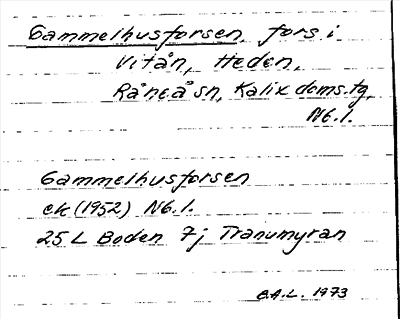 Gammelhusforsen, fors i
Vitån, Heden,
Råneå sn, Kalix doms.tg,
Nb.l.
Gammelhusforsen
ek (1952) Nb.l.
25 L Boden 7j Tranumyran
C.A.L. 1973